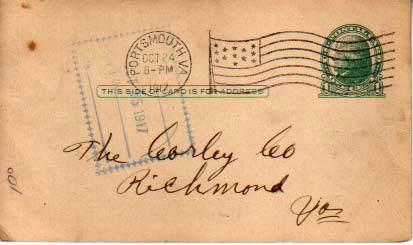 PORTSMOUTH VA.
OCT 24
8-PM
THIS SIDE OF CARD IS FOR ADDRESS
1917
The Corley Co
Richmond
Va